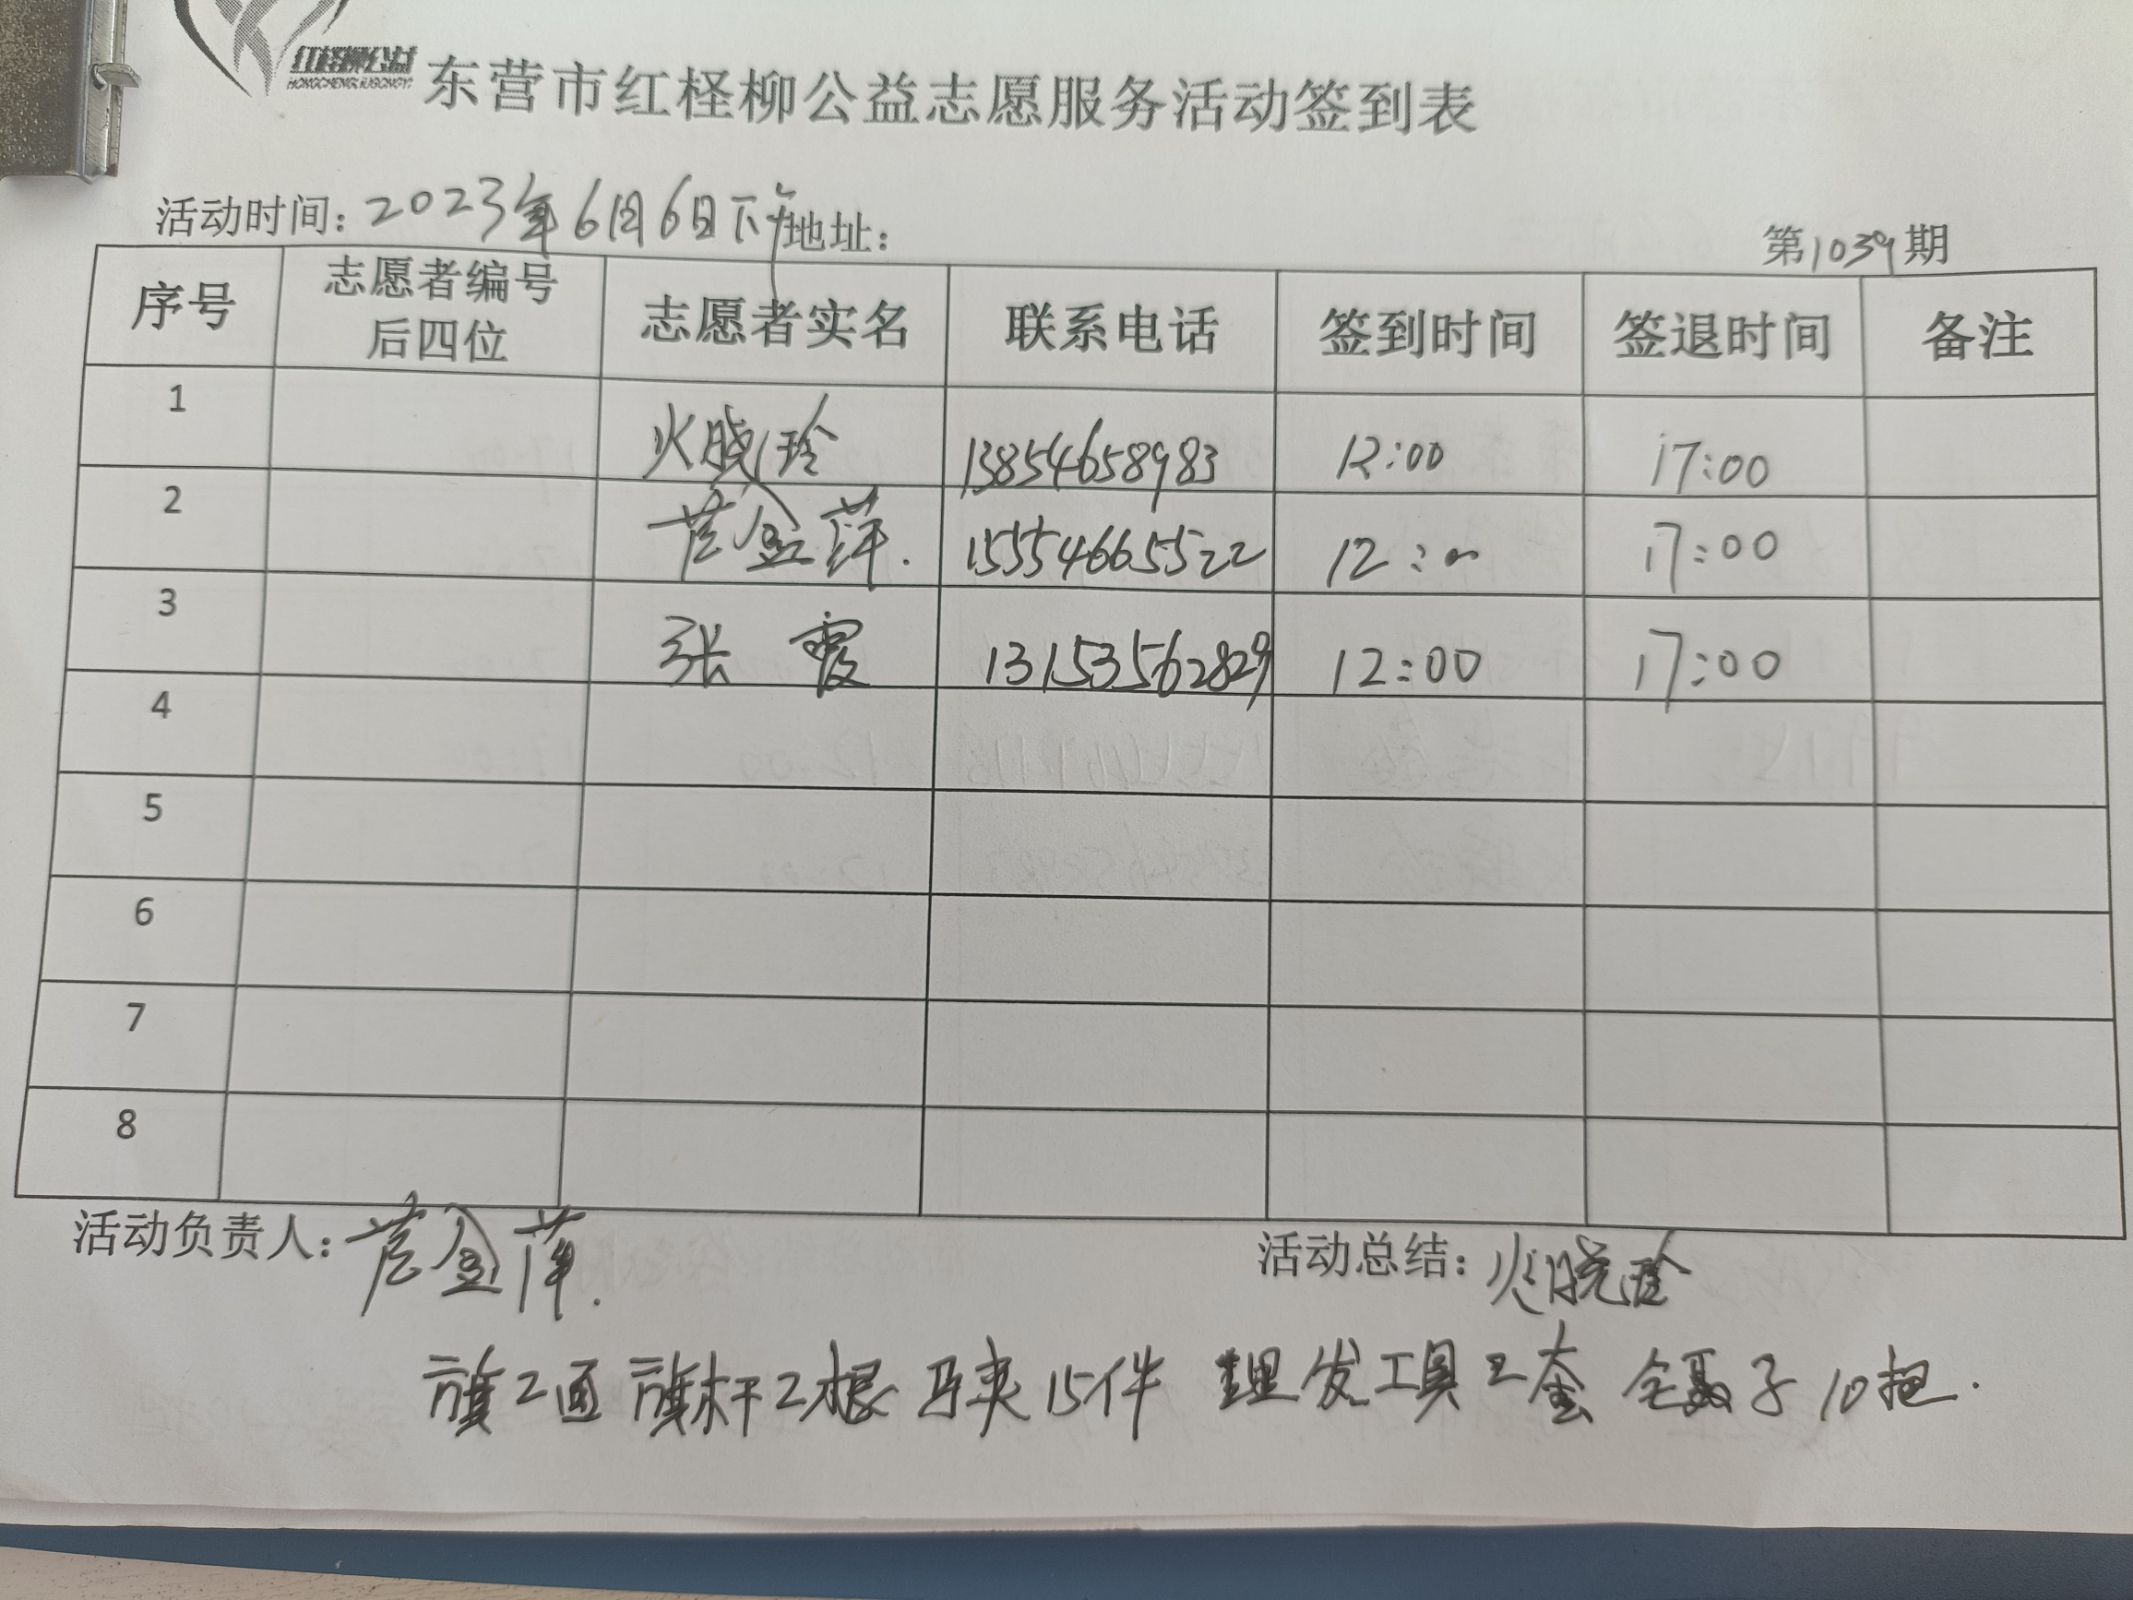 红柽柳公益
HONGCHENGLIUGONGYI
东营市红柽柳公益志愿服务活动签到表
活动时间：2023年6月6日下午 地址： 第1039期
序号 志愿者编号后四位 志愿者实名 联系电话 签到时间 签退时间 备注
1 火晓玲 13854658983 12:00 17:00
2 金萍. 15554665522 12:00 17:00
3 张霞 13153562829 12:00 17:00
4
5
6
7
8
活动负责人：金萍. 活动总结：火晓玲
旗2面 旗杆2根 马夹15件 理发工具2套 子10把.